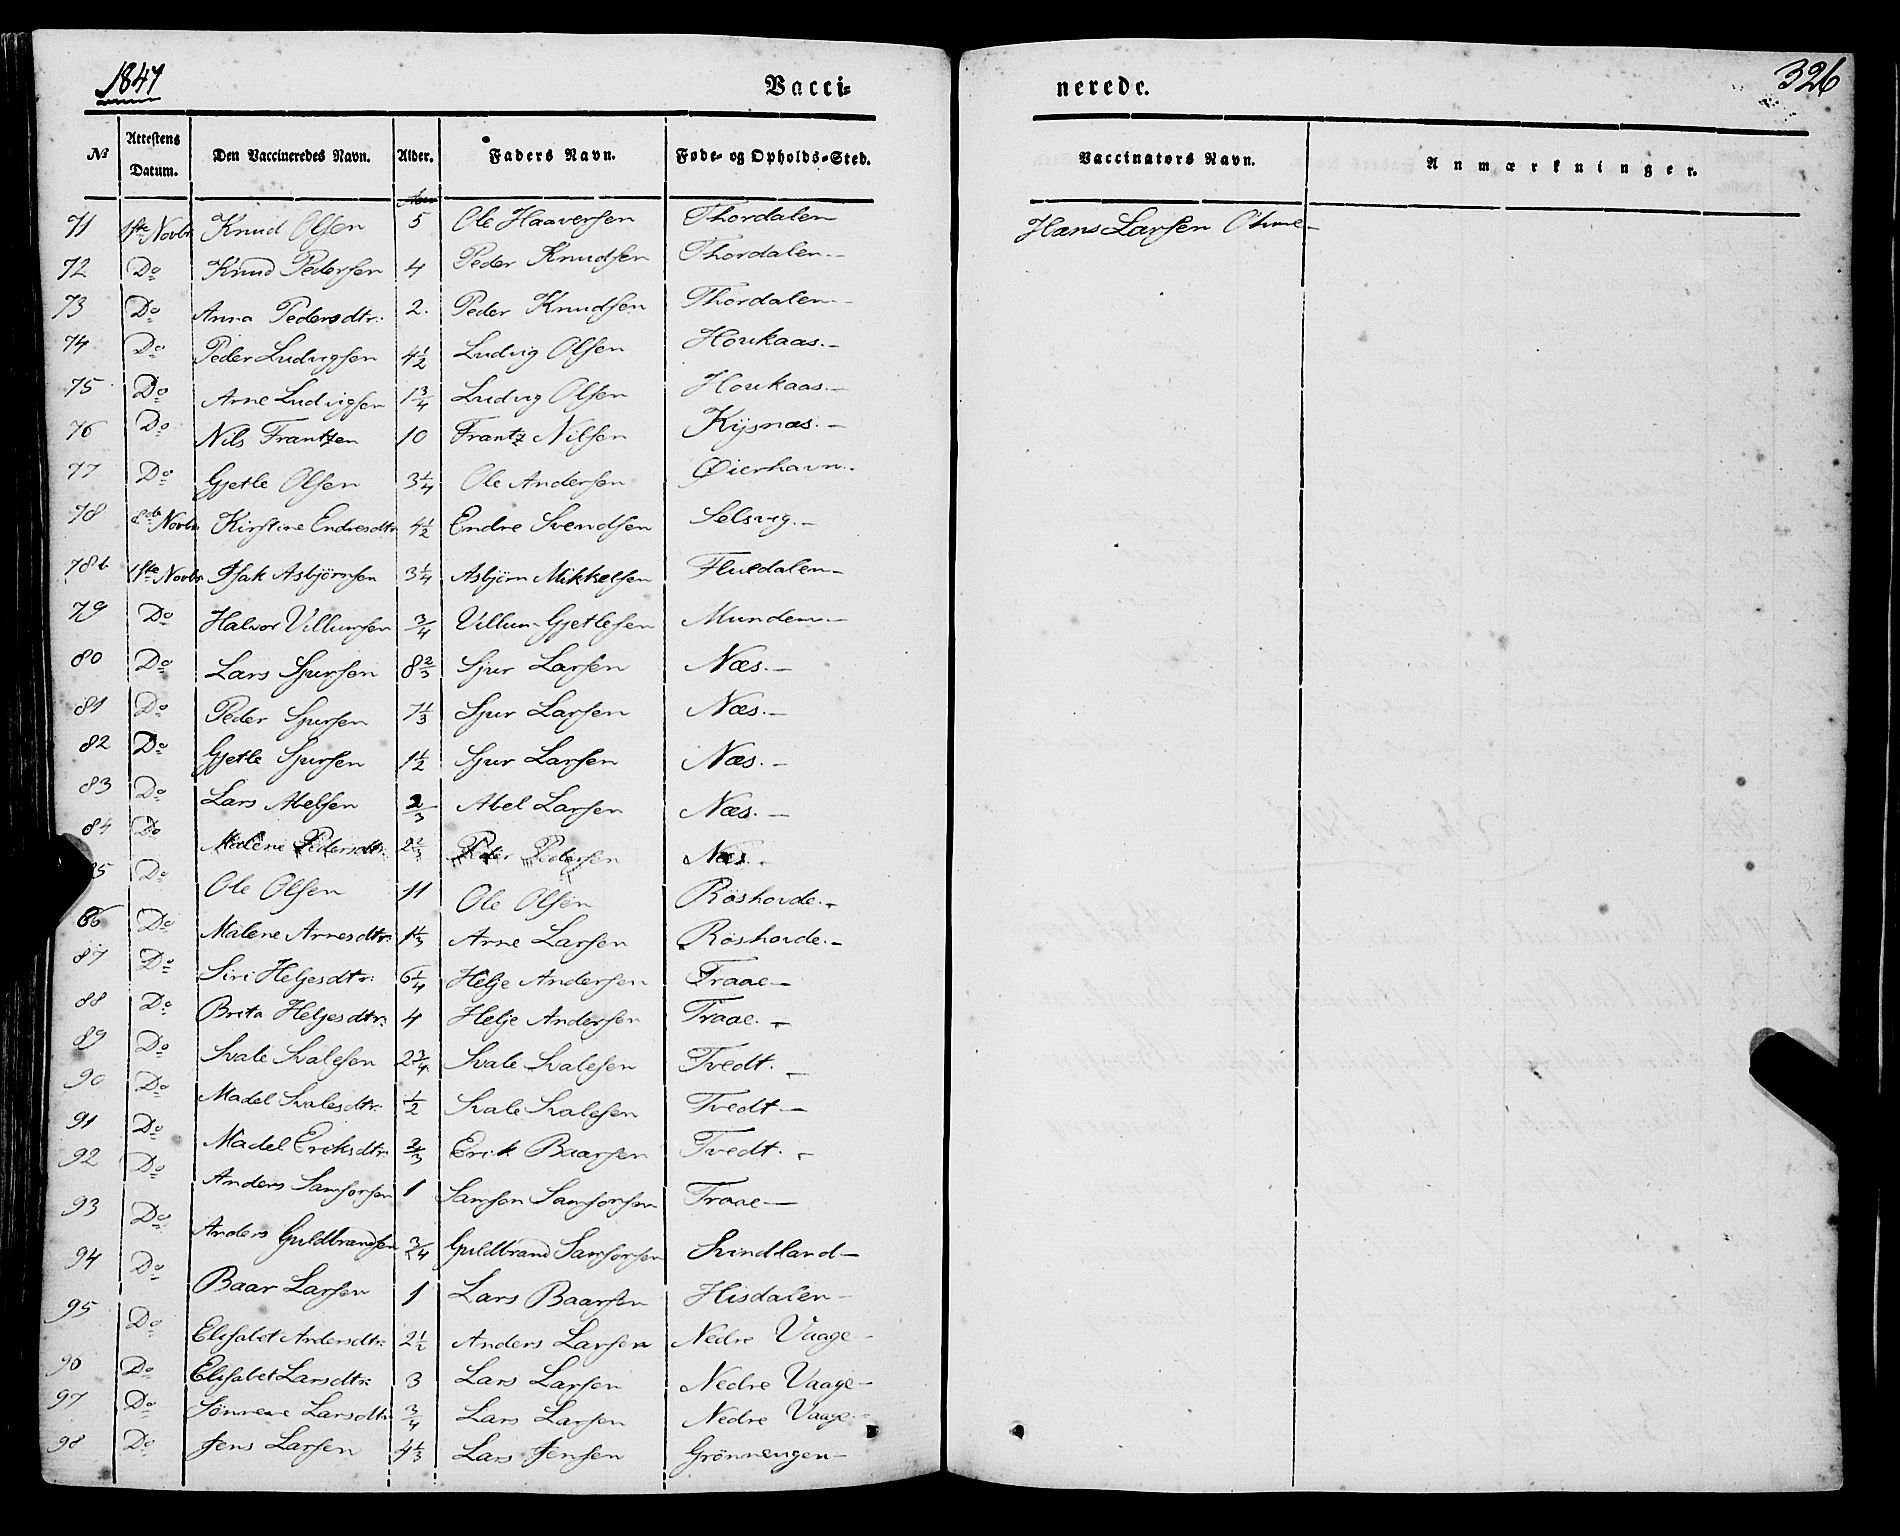 1847 Vacci- nerede. 326
No Attestens Datum. Den Vaccineredes Navn. Alder. Faders Navn. Føde- og Opholds-Sted. Vaccinators Navn. Anmærkninger.
71 1ste Novbr Knud Olsen 5 Ole Haaversen Thordalen Hans Larsen
72 Do Knud Pedersen 4 Peder Knudsen Thordalen.-
73 Do Anna Pedersdtr. 2. Peder Knudsen Thordalen.-
74 Do Peder Ludvigsen 4 1/2 Ludvig Olsen Houkaas.-
75 Do Arne Ludvigsen 1 3/4 Ludvig Olsen Houkaas.-
76 Do Nils Frantzen 10 Frantz Nilsen Kysnæs.-
77 Do Gjetle Olsen 3 1/4 Ole Andersen Øierhavn.-
78 8de Novbr Kirstine Endresdtr 4 1/2 Endre Svendsen Selsvig.-
78b 1ste Novbr Isak Asbjörnsen 3 1/4 Asbjörn Mikkelsen Fluedalen-
79 Do Halvor Villumsen 3/4 Villum Gjetlesen Mundem.-
80 Do Lars Sjursen 8 2/3 Sjur Larsen Næs.-
81 Do Peder Sjursen 7 1/3 Sjur Larsen Næs.-
82 Do Gjetle Sjursen 1 1/2 Sjur Larsen Næs.-
83 Do Lars Abelsen 2/3 Abel Larsen Næs.-
84 Do Malene Pedersdtr. 2 2/3 Peder Pedersen Næs.-
85 Do Ole Olsen 11 Ole Olsen Röshovde.-
86 Do Malene Arnesdtr. 1 1/3 Arne Larsen Röshovde.-
87 Do Siri Heljesdtr. 6 1/4 Helje Andersen Traae-
88 Do Brita Heljesdtr. 4 Helje Andersen Traae.-
89 Do Svale Svalesen 2 3/4 Svale Svalesen Tvedt.-
90 Do Madel Svalesdtr. 1/2 Svale Svalesen Tvedt-
91 Do Madel Eriksdtr. 2/3 Erik Baarsen Tvedt.-
92 Do Anders Samsonsen 1 Samson Samsonsen Traae-
93 Do Anders Guldbrandsen 3/4 Guldbrand Samsonsen Svindland-
94 Do Baar Larsen 1 Lars Baarsen Hisdalen-
95 Do Elisabet Andersdtr. 2 1/2 Anders Larsen Nedre Vaage-
96 Do Elisabet Larsdtr. 3 Lars Larsen Nedre Vaage-
97 Do Sönneve Larsdtr. 3/4 Lars Larsen Nedre Vaage.-
98 Do Jens Larsen 4 1/3 Lars Jensen Grönnengen-